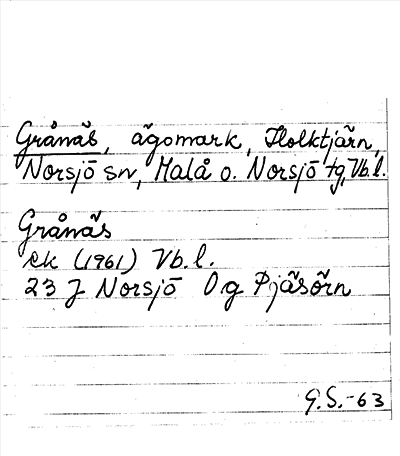 Grånäs, ägomark, Holktjärn,
Norsjö sn, Malå o. Norsjö tg, Vb.l.
Grånäs
ek (1961) Vb.l.
23 J Norsjö 0g Pjäsörn
G.S.-63